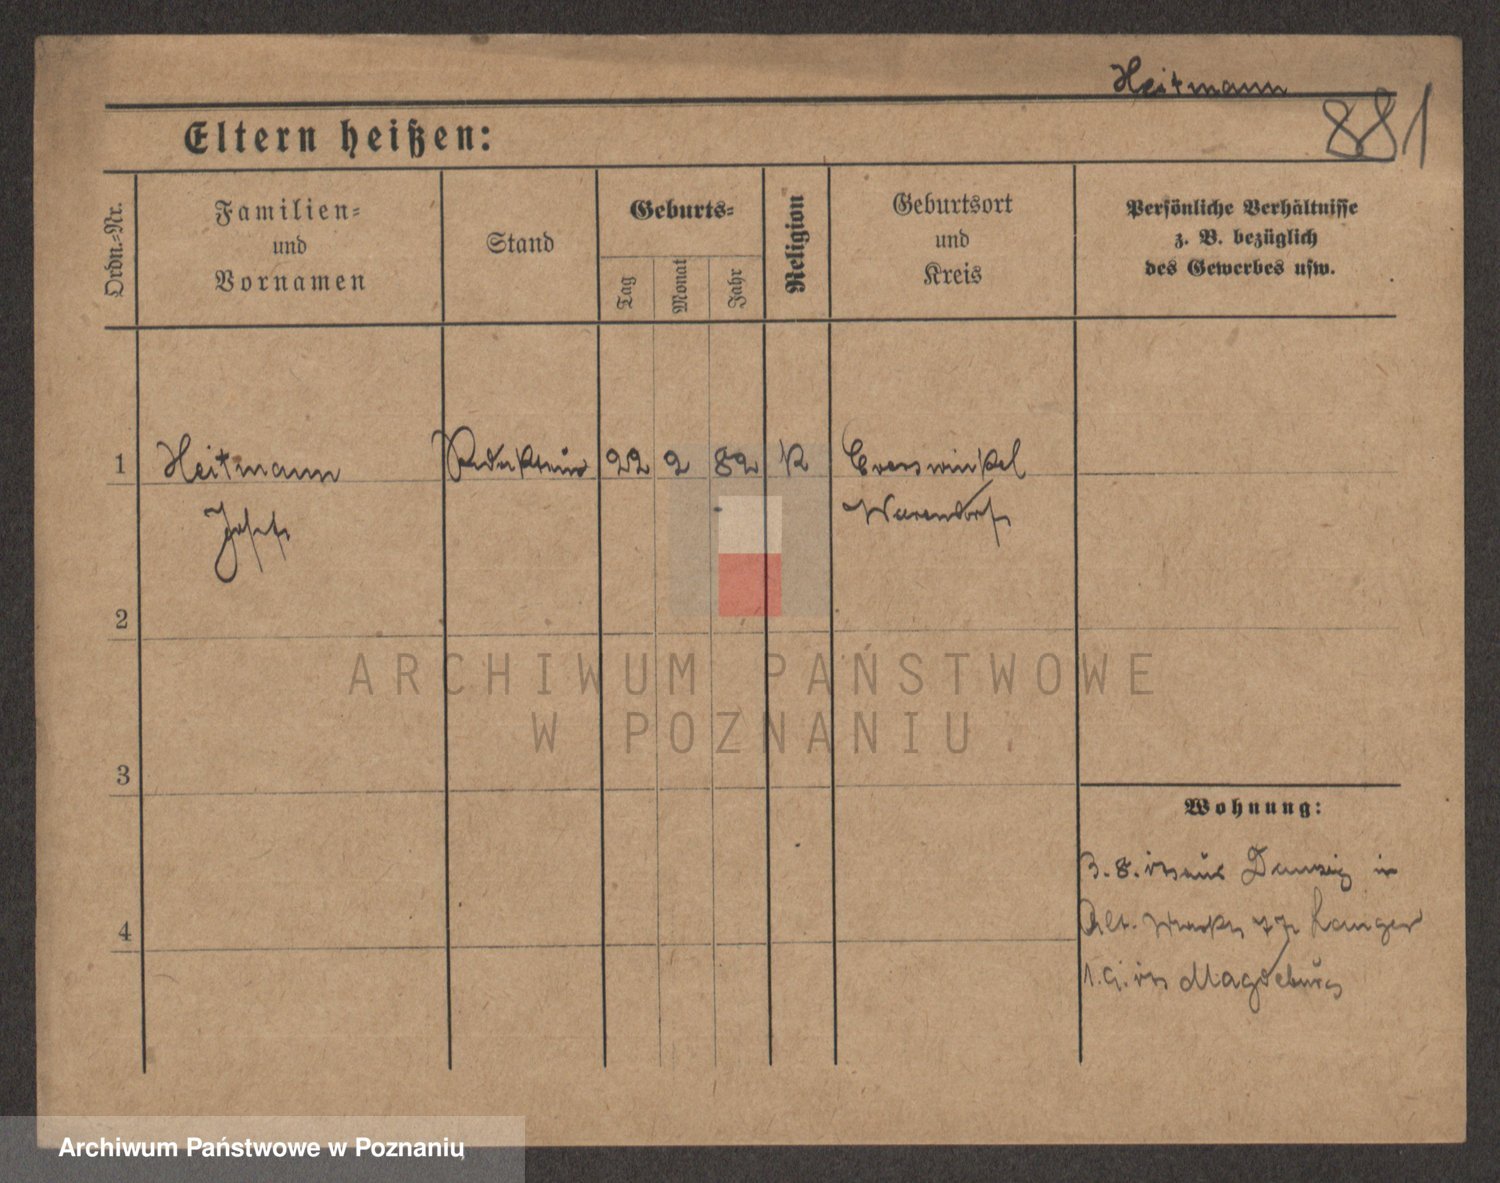 Heitmann
881
Eltern heißen:
Ordn.-Nr.
Familien-
und
Vornamen
Stand
Geburts-
Tag
Monat
Jahr
Religion
Geburtsort
und
Kreis
Persönliche Verhältnisse
z. B. bezüglich
des Gewerbes usw.
1 Heitmann Redakteur 22 2 82 K Everswinkel
Josef Warendorf
2
ARCHIWUM PAŃSTWOWE
W POZNANIU
3
Wohnung:
3.8. aus Danzig in
Alt. Markt 77 Langer
Magdeburg
4
Archiwum Państwowe w Poznaniu